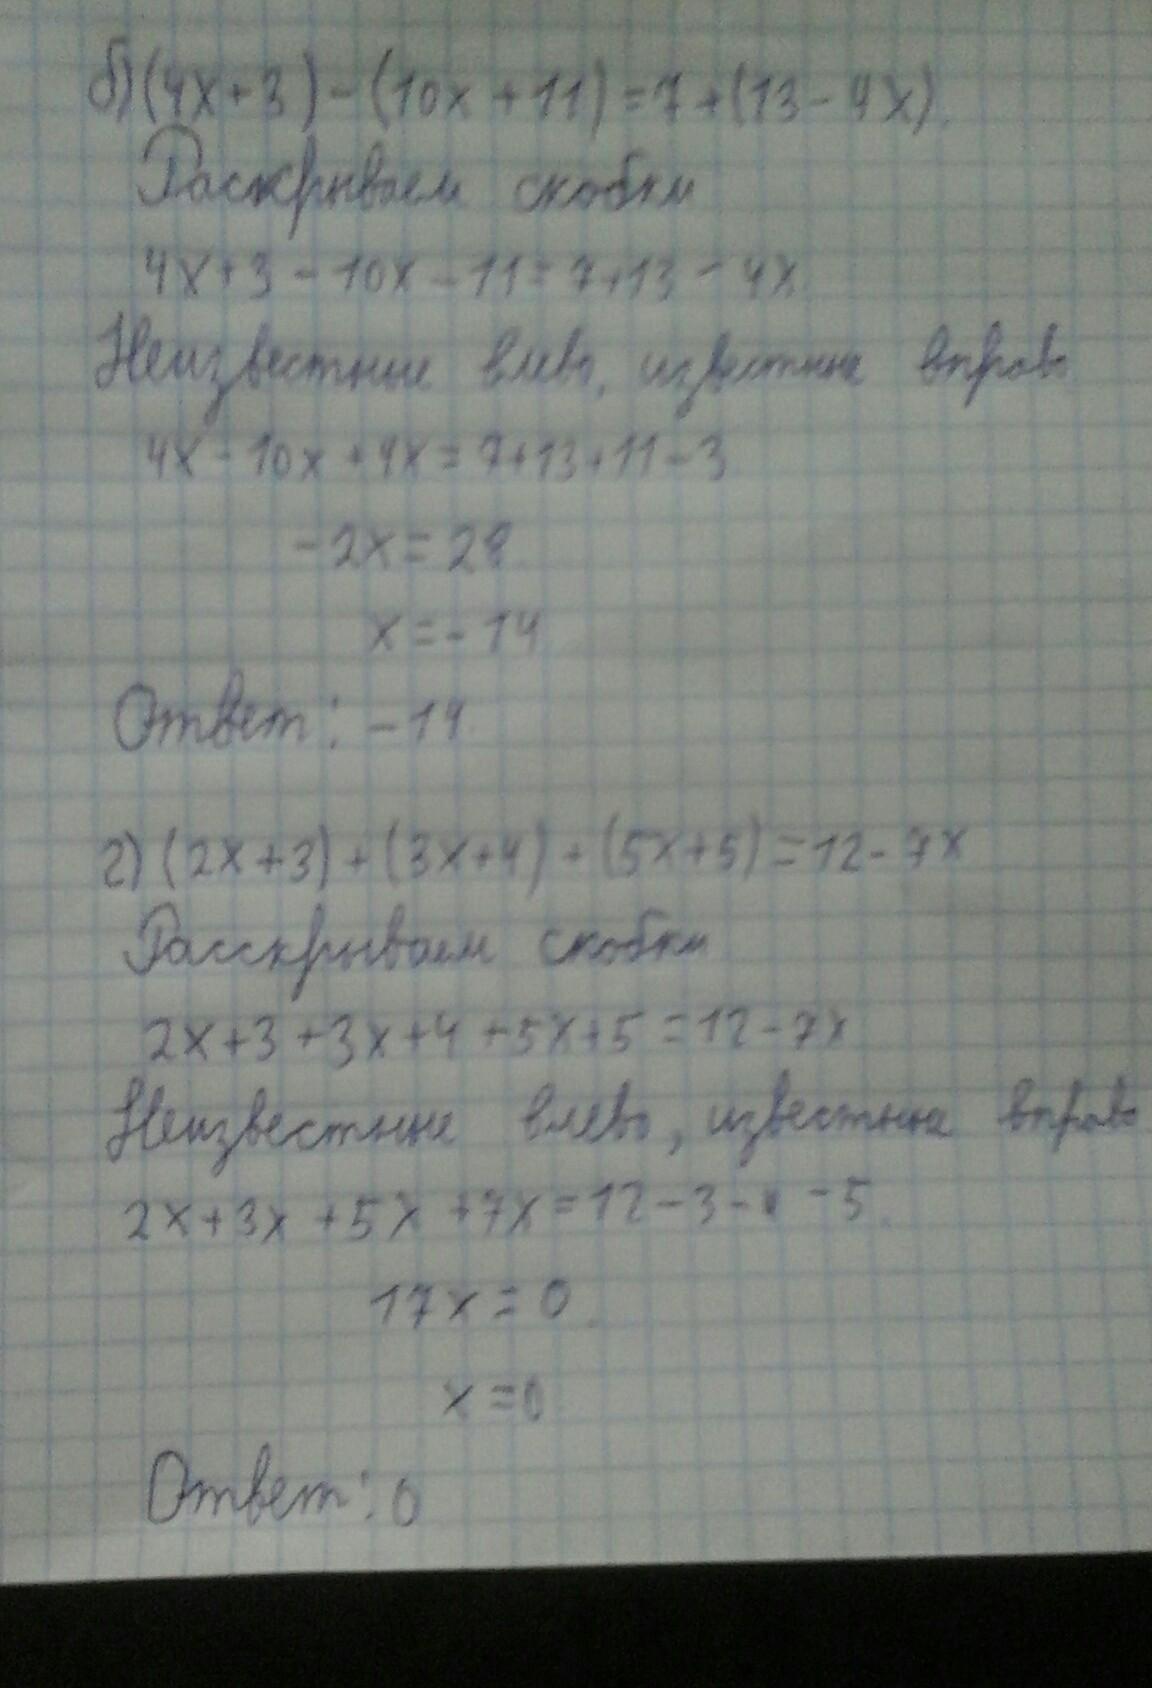 б) (4x+3)-(10x+11)=7+(13-4x).
Раскрываем скобки
4x+3-10x-11=7+13-4x
Неизвестные влево, известные вправо
4x-10x+4x=7+13+11-3
-2x=28
x=-14
Ответ: -14.
г) (2x+3)+(3x+4)+(5x+5)=12-7x
Расскрываем скобки
2x+3+3x+4+5x+5=12-7x
Неизвестные влево, известные вправо
2x+3x+5x+7x=12-3-4-5.
17x=0.
x=0
Ответ: 0